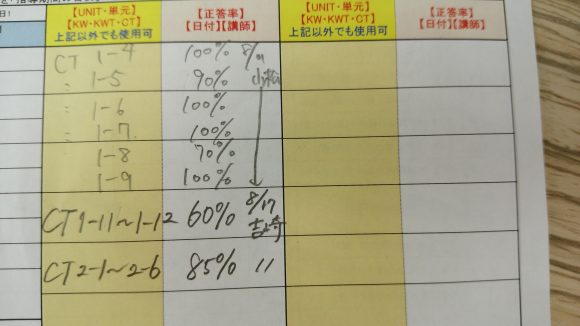 【UNIT・単元】
【KW・KWT・CT】
上記以外でも使用可
【正答率】
【日付】【講師】
【UNIT・単元】
【KW・KWT・CT】
上記以外でも使用可
【正答率】
【日付】【講師】
CT 1-4 100%
〃 1-5 90% 小松
〃 1-6 100%
〃 1-7 100%
1-8 70%
1-9 100%
CT1-11~1-12 60% 8/17 吉崎
CT2-1~2-6 85% 〃